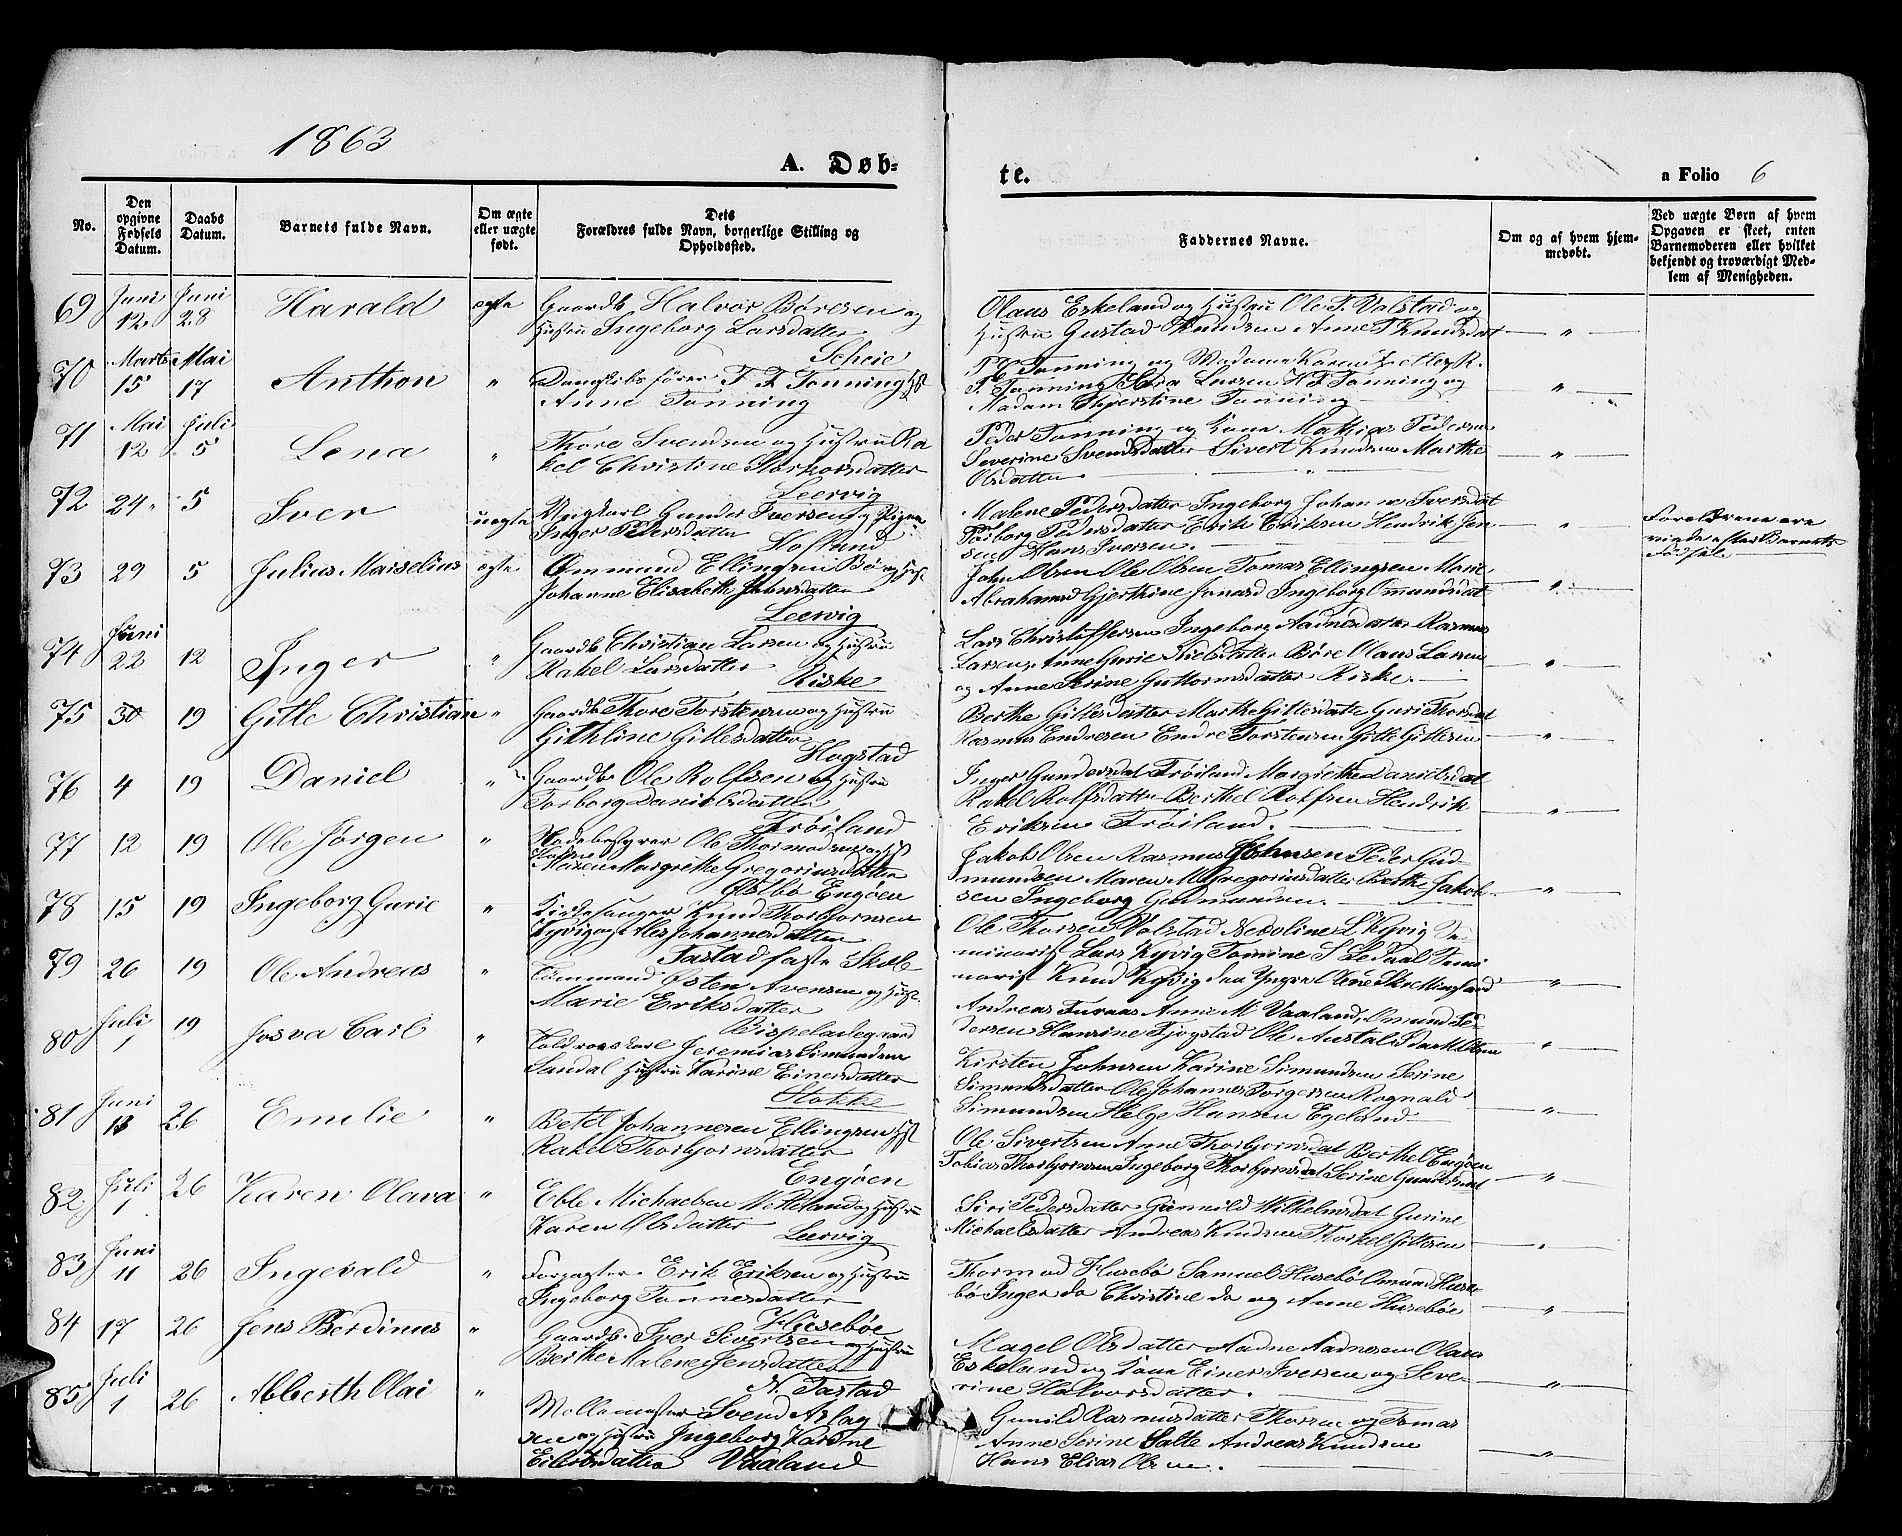 1863
A. Døb-
te.
a Folio 6
No.
Den opgivne Fødsels Datum.
Daabs Datum.
Barnets fulde Navn.
Om ægte eller uægte født.
Dets Forældres fulde Navn, borgerlige Stilling og Opholdssted.
Faddernes Navne.
Om og af hvem hjemmedøbt.
Ved uægte Børn af hvem Opgaven er skeet, enten Barnemoderen eller hvilket bekjendt og troværdigt Medlem af Menigheden.
69 Juni 12 Juni 28 Harald ægte
Gaardb. Halvor Børesen og
Hustru Ingeborg Larsdatter
Scheie
Olaus Eskeland og Hustru Ole T. Valstad og
Hustru Gustad Knudsen Anne T Knudsdat
70 Marts 15 Mai 17 Anthon "
Dampskibsfører T. F. Tonning Hst
Anne Tonning
Tonning og Madame Karen
T. Tonning Sara Larsen H T Tonning og
Madam Kjerstine Tonning
71 Mai 12 Juli 5 Lena "
Thore Svendsen og Hustru Ra
kel Christine Storkorsdatter
Leervig
Peder Tonning og Kone Mathias Pedersen
Severine Svendsdatter Sivert Knudsen Marthe
Olsdatter
72 24 5 Iver uægte
Ungkarl Gunder Iversen og Pigen
Inger Pedersdatter
Hofland
Malene Pedersdatter Ingeborg Johanne Iversdat
Torborg Pedersdatter Erik Eriksen Hendrik Jen
sen Hans Iversen.
Forældrene ere
viede efter Barnets
Fødsel
73 29 5 Julius Marselius ægte
Ommund Ellingsen Bø og Hust.
Johanne Elisabeth Johnsdatter
Leervig
John Olsen Ole Olsen Tomas Ellingsen
Abrahamsd Gjerthine Jonasd Ingeborg Omundsdat
74 Juni 22 12 Inger "
Gaardb Christian Larsen og Hustru
Rakel Larsdatter
Riske
Lars Christoffersen Ingeborg Aadnesdatter Rasmus
Larsen, Anne Gurie Nielsdatter Børe Olaus Larsen
og Anne Serine Guttormsdatter Riske.
75 30 19 Gitle Christian "
Gaardb Thore Torstensen og Hustru
Githline Gitlesdatter
Hogstad
Berthe Gitlesdatter Marthe Gitlesdatter Guri Thorsdat
Rasmus Endresen Endre Torstensen Gitle Gitlesen
76 4 19 Daniel "
Gaardb. Ole Rolfsen og Hustru
Torborg Danielsdatter
Trøiland
Inger Gundersdat Trøiland Margrethe Danielsdat
Rakel Rolfsdatter Berthel Rolfsen Hendrik
Eriksen Trøiland.
77 12 19 Ole Jørgen "
Ole Thormodsen og Hst
Maren Margrethe Gregoriusdatter
Østbø Engøen
Jakob Olsen Rasmus Johnsen Peder Gud
mundsen Maren M Gregoriusdatter Berthe Jakob
sen Ingeborg Gudmundsen.
78 15 19 Ingeborg Gurie "
Kirkesanger Knud Thorbjørnsen
Kyvig og Johannesdatter
Tastad faste Skole
Ole Thorsen Valstad Nedoline L Kyvig Se-
minarist Lars Kyvig Tomine S Ledaal Semi
narist Knud Kyvig Skrettingland
79 26 19 Ole Andreas "
Tømmand Østen Avensen og Hust.
Marie Eriksdatter
Bispeladegaard
Andreas Furaas Anne M Vaaland, Omund Pe
dersen Hansine Tjogstad Ole Austalid Olsen
80 Juli 1 19 Josva Carl "
Toldroerskarl Jeremias Simundsen
Sandal Hustru Karine Einersdatter
Stokke
Kirsten Johnsen Karine Simundsen Serine
Simundsdatter Ole Johannes Torgersen Rognald
Simundsen Helge Hansen Egeland
81 Juni 13 26 Emilie "
Betel Johannesen Ellingsen Hst
Rakel Thorbjørnsdatter
Engøen
Ole Sivertsen Anne Thorbjørnsdat Berthel Engøen
Tobias Thorbjørnsen Ingeborg Thorbjørnsdat Serine Gundersdat
82 Juli 1 26 Karen Olava "
Eble Michaelsen Veteland og Hustru
Karen Olsdatter
Leervig
Siri Pedersdatter Gunnild Wilhelmsdat Gurine
Michaelsdatter Andreas Knudsen Thorkel Gitlesen
83 Juni 11 26 Ingevald "
Forpagter Erik Eriksen og Hustru
Ingeborg Tonnesdatter
Husebøe
Thormod Husebø Samuel Husebø Omund Huse
bø Inger do Christine do og Anne Husebøe
84 17 26 Jens Berdinus "
Gaardb. Iver Sivertsen og Hustru
Berthe Malene Jensdatter
N. Tastad
Magel Olsdatter Aadne Aadnesen Olaus
Eskeland og Kone Einer Iversen og Seve-
rine Halvorsdatter.
85 Juli 1 26 Albberth Olai "
Møllemester Svend Aslag
sen og Hustru Ingeborg Karine
Eilertsdatter Vaaland
Gunild Rasmusdatter Thorsen og Tomas
Anne Serine Salte Andreas Knudsen
Hans Elias Olsen.